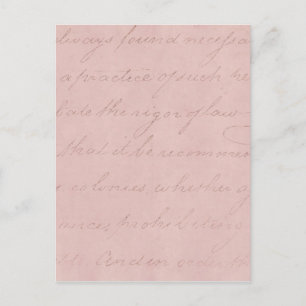 always found necessa
a practice of such he
bate the rigor of law
that it be recomme
e colonies, whether a
inces, prohibiting
And in order th